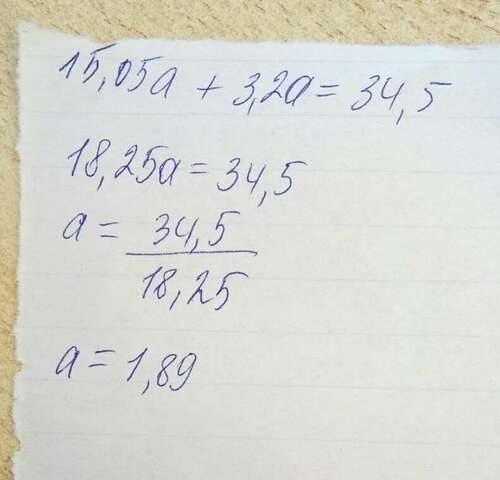 15,05a + 3,2a = 34,5
18,25a = 34,5
a = 34,5
18,25
a = 1,89